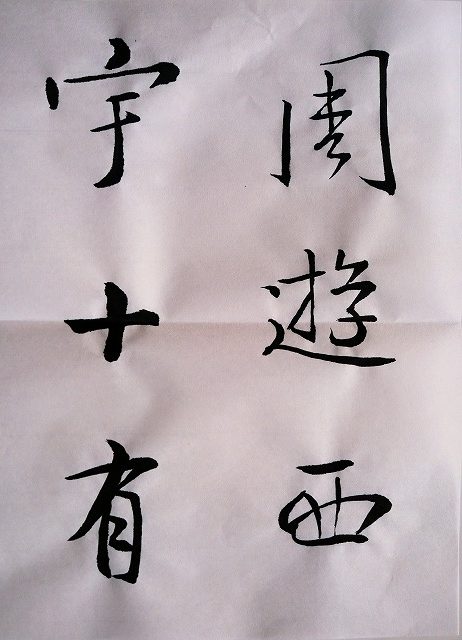 周遊西
宇十有